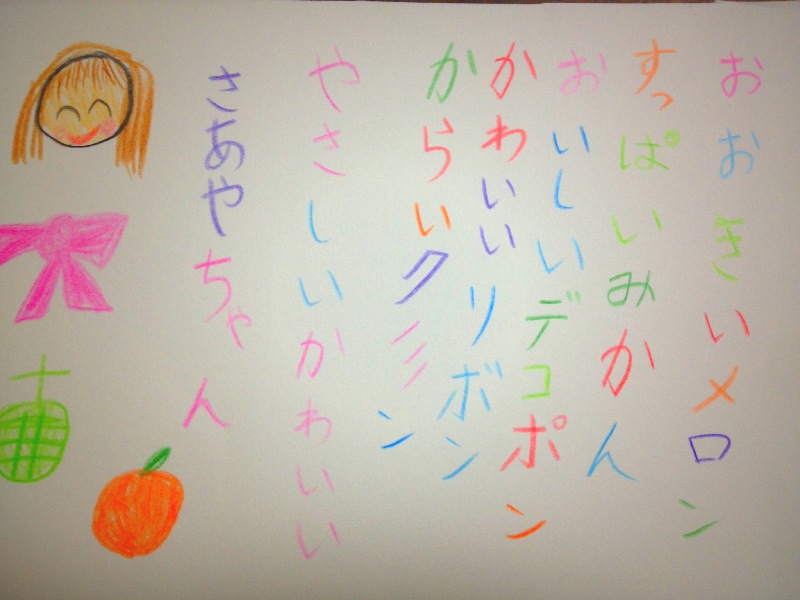 おおきいメロン
すっぱいみかん
おいしいデコポン
かわいいリボン
からいクミン
やさしいかわいい
さあやちゃん